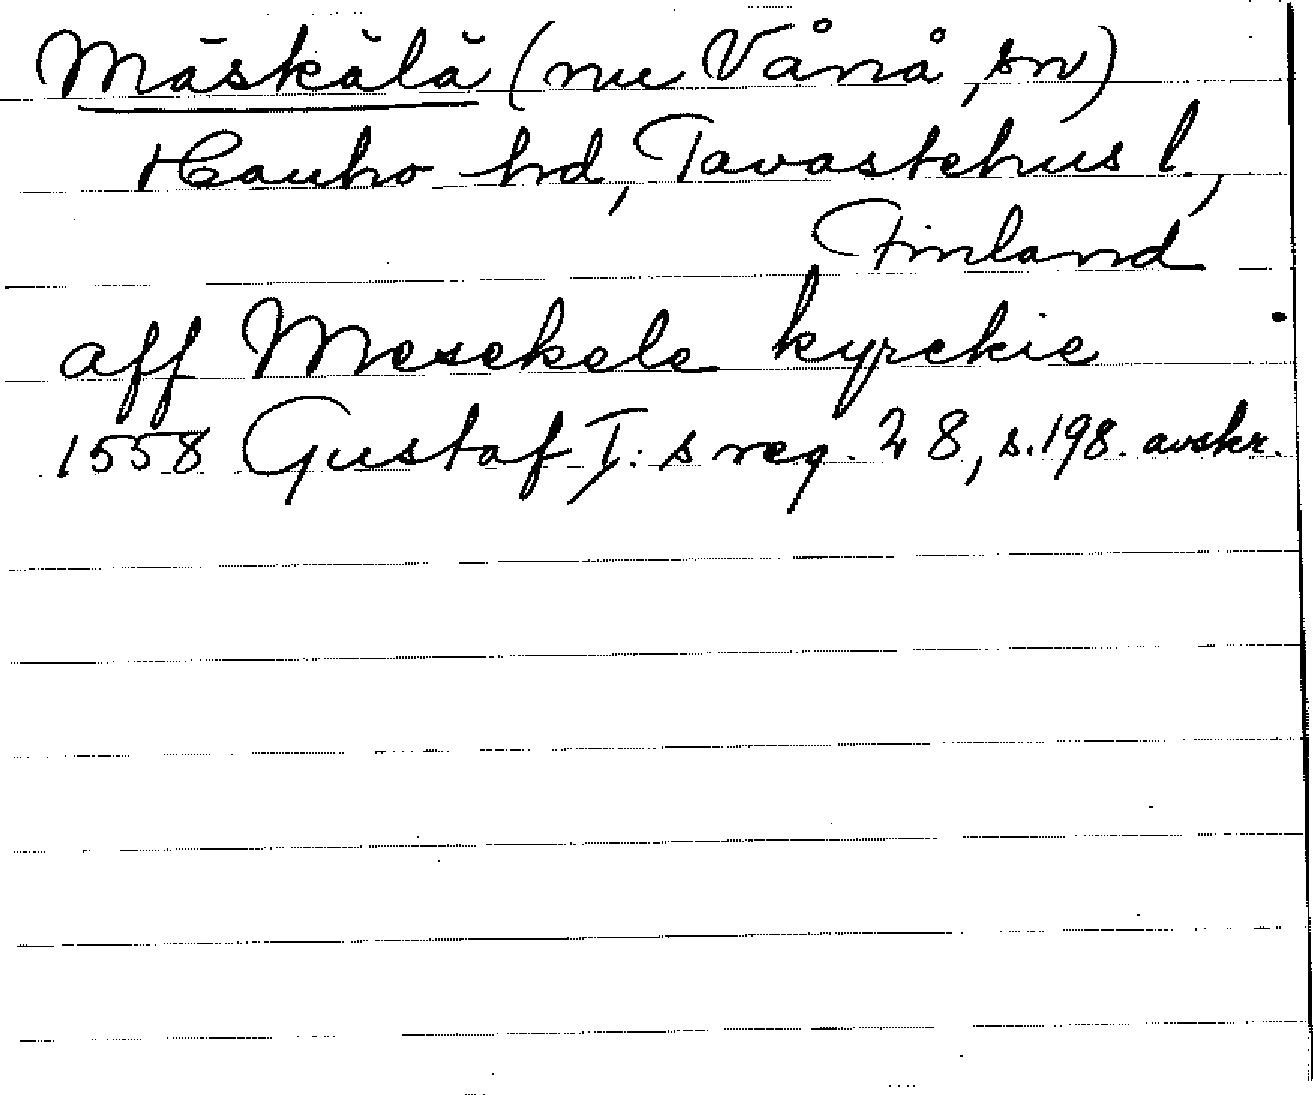 Mäskälä (nu Vånå, sn)
Hauho hd, Tavastehus l.,
Finland
aff Mesekele kyrckie
1558 Gustaf I:s reg. 28, s. 198. avskr.